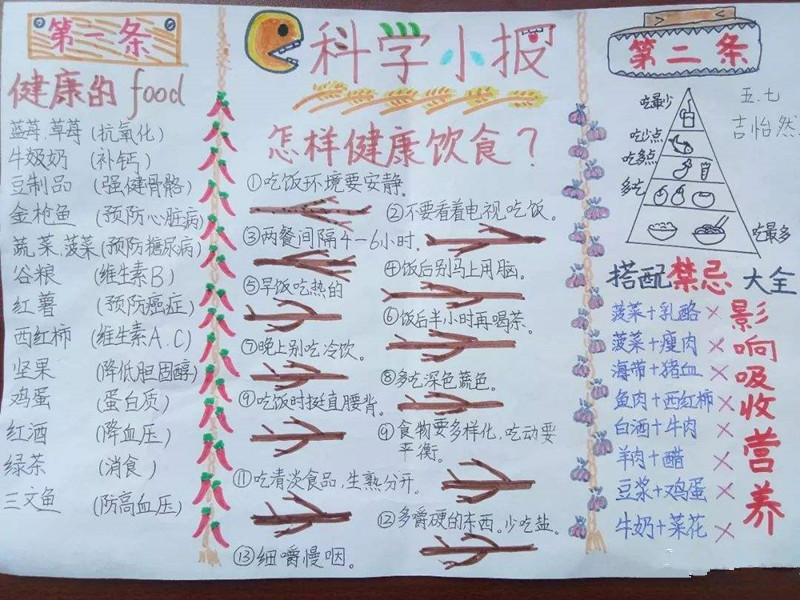 第一条
健康的 food
蓝莓.草莓 (抗氧化)
牛奶奶 (补钙)
豆制品 (强健骨骼)
金枪鱼 (预防心脏病)
蔬菜.菠菜 (预防糖尿病)
谷粮 (维生素B)
红薯 (预防癌症)
西红柿 (维生素A.C)
坚果 (降低胆固醇)
鸡蛋 (蛋白质)
红酒 (降血压)
绿茶 (消食)
三文鱼 (防高血压)
科学小报
怎样健康饮食?
①吃饭环境要安静.
②不要看着电视吃饭。
③两餐间隔4-6小时.
④饭后别马上用脑。
⑤早饭吃热的
⑥饭后半小时再喝茶。
⑦晚上别吃冷饮。
⑧多吃深色蔬色。
⑨吃饭时挺直腰背。
⑨食物要多样化,吃动要
平衡。
⑪吃清淡食品,生熟分开.
⑫多嚼硬的东西.少吃盐.
⑬细嚼慢咽。
第二条
五.七
吉怡然
吃最少
吃少点
吃多点
多吃
吃最多
搭配禁忌大全
菠菜+乳酪×
菠菜+瘦肉×
海带+猪血×
鱼肉+西红柿×
白酒+牛肉×
羊肉+醋×
豆浆+鸡蛋×
牛奶+菜花×
影响吸收营养